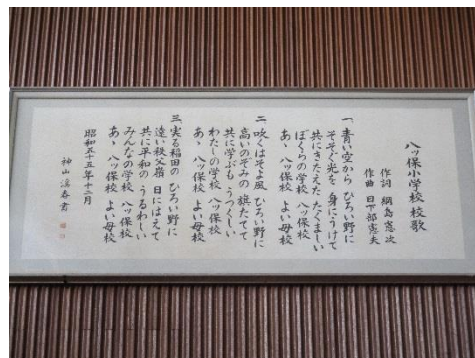 八ッ保小学校 校歌
作詞 綱島憲次
作曲 日下部憲夫
一、青い空から ひろい野に
そそぐ光を 身にうけて
共にきたえた たくましい
ぼくらの学校 八ッ保校
あゝ 八ッ保校 よい母校
二、吹くはそよ風 ひろい野に
高いのぞみの 旗たてて
共に学ぶも うつくしい
わたしの学校 八ッ保校
あゝ 八ッ保校 よい母校
三、実る稲田の ひろい野に
遠い秩父嶺 日にはえて
共に平和の うるわしい
みんなの学校 八ッ保校
あゝ 八ッ保校 よい母校
昭和五十五年十二月
神山 春 書